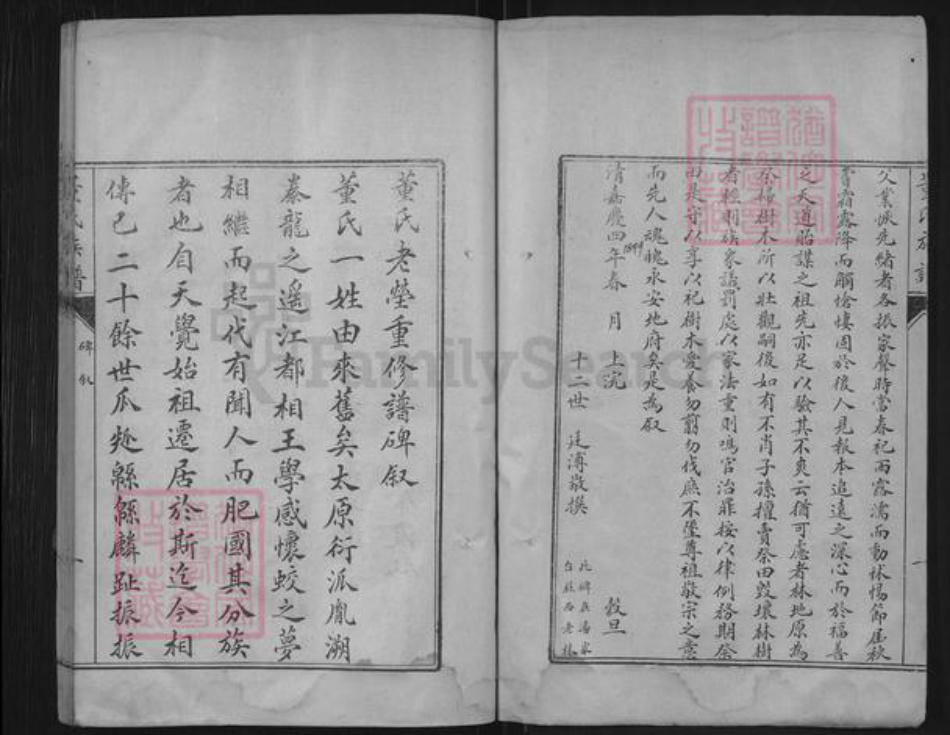 父業恢先緒者各振家聲時當春祀雨露濡而動怵惕節屆秋
嘗霜露降而觸愴悽固於後人見報本追遠之深心而於福善
之天道貽謀之祖先亦足以驗其不爽云猶可慮者林地原為
祭掃樹木所以壯觀嗣後如有不肖子孫擅賣祭田毀壞林樹
者輕則族衆議罰處以家法重則鳴官治罪按以律例務期祭
田是守以享以祀樹木愛養勿翦勿伐庶不墮尊祖敬宗之意
而先人魂魄永安地府矣是為叙
清嘉慶四年春 月 上浣 穀旦
1899
十二世 廷溥敬撰
此碑在湯家
台莊西老林
董氏族譜
碑叙
董氏老塋重修譜碑叙
董氏一姓由來舊矣太原衍派胤溯
豢龍之遥江都相王學感懷蛟之夢
相繼而起代有聞人而肥國其分族
者也自天覺始祖遷居於斯迄今相
傳已二十餘世瓜瓞緜緜麟趾振振
FamilySearch